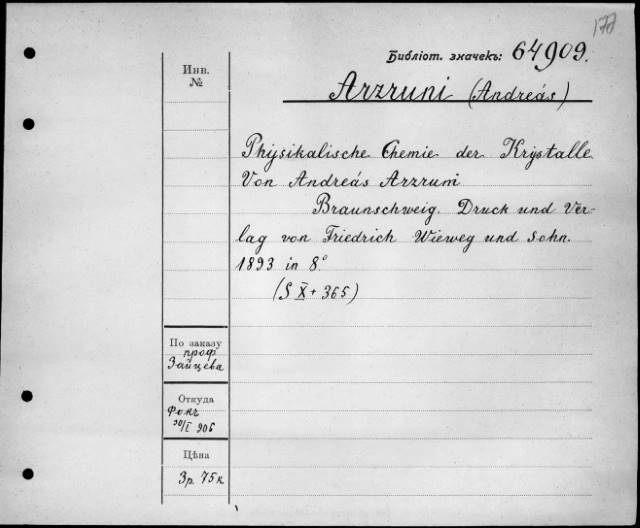 177
Библіот. значекъ: 64909.
Инв.
№
Arzruni (Andreás)
Physikalische Chemie der Krystalle
Von Andreás Arzruni
Braunschweig. Druck und Ver-
lag von Friedrich Wieweg und Sohn.
1893 in 8°
(S X + 365)
По заказу
проф
Зайцева
Откуда
Фокъ
30/I 906
Цѣна
3р. 75к